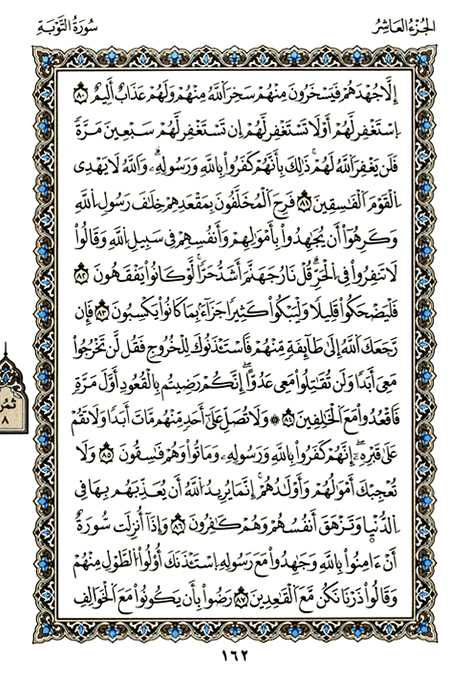 الجُزْءُ العَاشِرُ
سُورَةُ التَّوْبَةِ
إِلَّا جُهْدَهُمْ فَيَسْخَرُونَ مِنْهُمْ سَخِرَ اَللَّهُ مِنْهُمْ وَلَهُمْ عَذَابٌ أَلِيمٌ ٨٠
اِسْتَغْفِرْ لَهُمْ أَوْ لَا تَسْتَغْفِرْ لَهُمْ إِن تَسْتَغْفِرْ لَهُمْ سَبْعِينَ مَرَّةً
فَلَنْ يَغْفِرَ اَللَّهُ لَهُمْ ذَٰلِكَ بِأَنَّهُمْ كَفَرُواْ بِاللَّهِ وَرَسُولِهِۦ وَاللَّهُ لَا يَهْدِي
اِلْقَوْمَ اَلْفَٰسِقِينَ ٨١ فَرِحَ اَلْمُخَلَّفُونَ بِمَقْعَدِهِمْ خِلَٰفَ رَسُولِ اِللَّهِ
وَكَرِهُوٓاْ أَنْ يُجَٰهِدُواْ بِأَمْوَٰلِهِمْ وَأَنفُسِهِمْ فِي سَبِيلِ اِللَّهِ وَقَالُواْ
لَا تَنفِرُواْ فِي اِلْحَرِّ قُلْ نَارُ جَهَنَّمَ أَشَدُّ حَرّاً لَّوْ كَانُواْ يَفْقَهُونَ ٨٢
فَلْيَضْحَكُواْ قَلِيلاً وَلْيَبْكُواْ كَثِيراً جَزَآءً بِمَا كَانُواْ يَكْسِبُونَ ٨٣ فَإِن
رَّجَعَكَ اَللَّهُ إِلَىٰ طَآئِفَةٍ مِّنْهُمْ فَاسْتَـْٔذَنُوكَ لِلْخُرُوجِ فَقُل لَّن تَخْرُجُواْ
مَعِي أَبَداً وَلَن تُقَٰتِلُواْ مَعِي عَدُوّاً إِنَّكُمْ رَضِيتُم بِالْقُعُودِ أَوَّلَ مَرَّةٍ
فَاقْعُدُواْ مَعَ اَلْخَٰلِفِينَ ٨٤ وَلَا تُصَلِّ عَلَىٰٓ أَحَدٍ مِّنْهُم مَّاتَ أَبَداً وَلَا تَقُمْ
عَلَىٰ قَبْرِهِۦٓ إِنَّهُمْ كَفَرُواْ بِاللَّهِ وَرَسُولِهِۦ وَمَاتُواْ وَهُمْ فَٰسِقُونَ ٨٥ وَلَا
تُعْجِبْكَ أَمْوَٰلُهُمْ وَأَوْلَٰدُهُمْ إِنَّمَا يُرِيدُ اُللَّهُ أَنْ يُعَذِّبَهُم بِهَا فِي
اِلدُّنْيَا وَتَزْهَقَ أَنفُسُهُمْ وَهُمْ كَٰفِرُونَ ٨٦ وَإِذَآ أُنزِلَتْ سُورَةٌ
أَنْ ءَامِنُواْ بِاللَّهِ وَجَٰهِدُواْ مَعَ رَسُولِهِ اِسْتَـْٔذَنَكَ أُوْلُواْ اُلطَّوْلِ مِنْهُمْ
وَقَالُواْ ذَرْنَا نَكُن مَّعَ اَلْقَٰعِدِينَ ٨٧ رَضُواْ بِأَنْ يَكُونُواْ مَعَ اَلْخَوَالِفِ
١٦٢